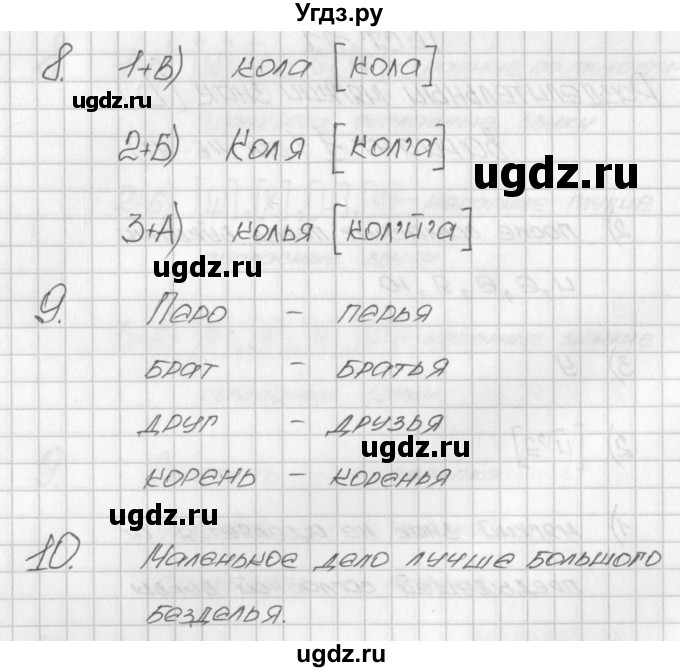 Угдз.ру
8. 1+В) кола [кола]
ugdz.ru
2+Б) Коля [кол'а]
ugdz.ru
3+А) колья [кол'й'а]
ugdz.ru
9. Перо - перья
брат - братья
друг - друзья
ugdz.ru
корень - коренья
ugdz.ru
10. Маленькое дело лучше большого
безделья.
ugdz.ru